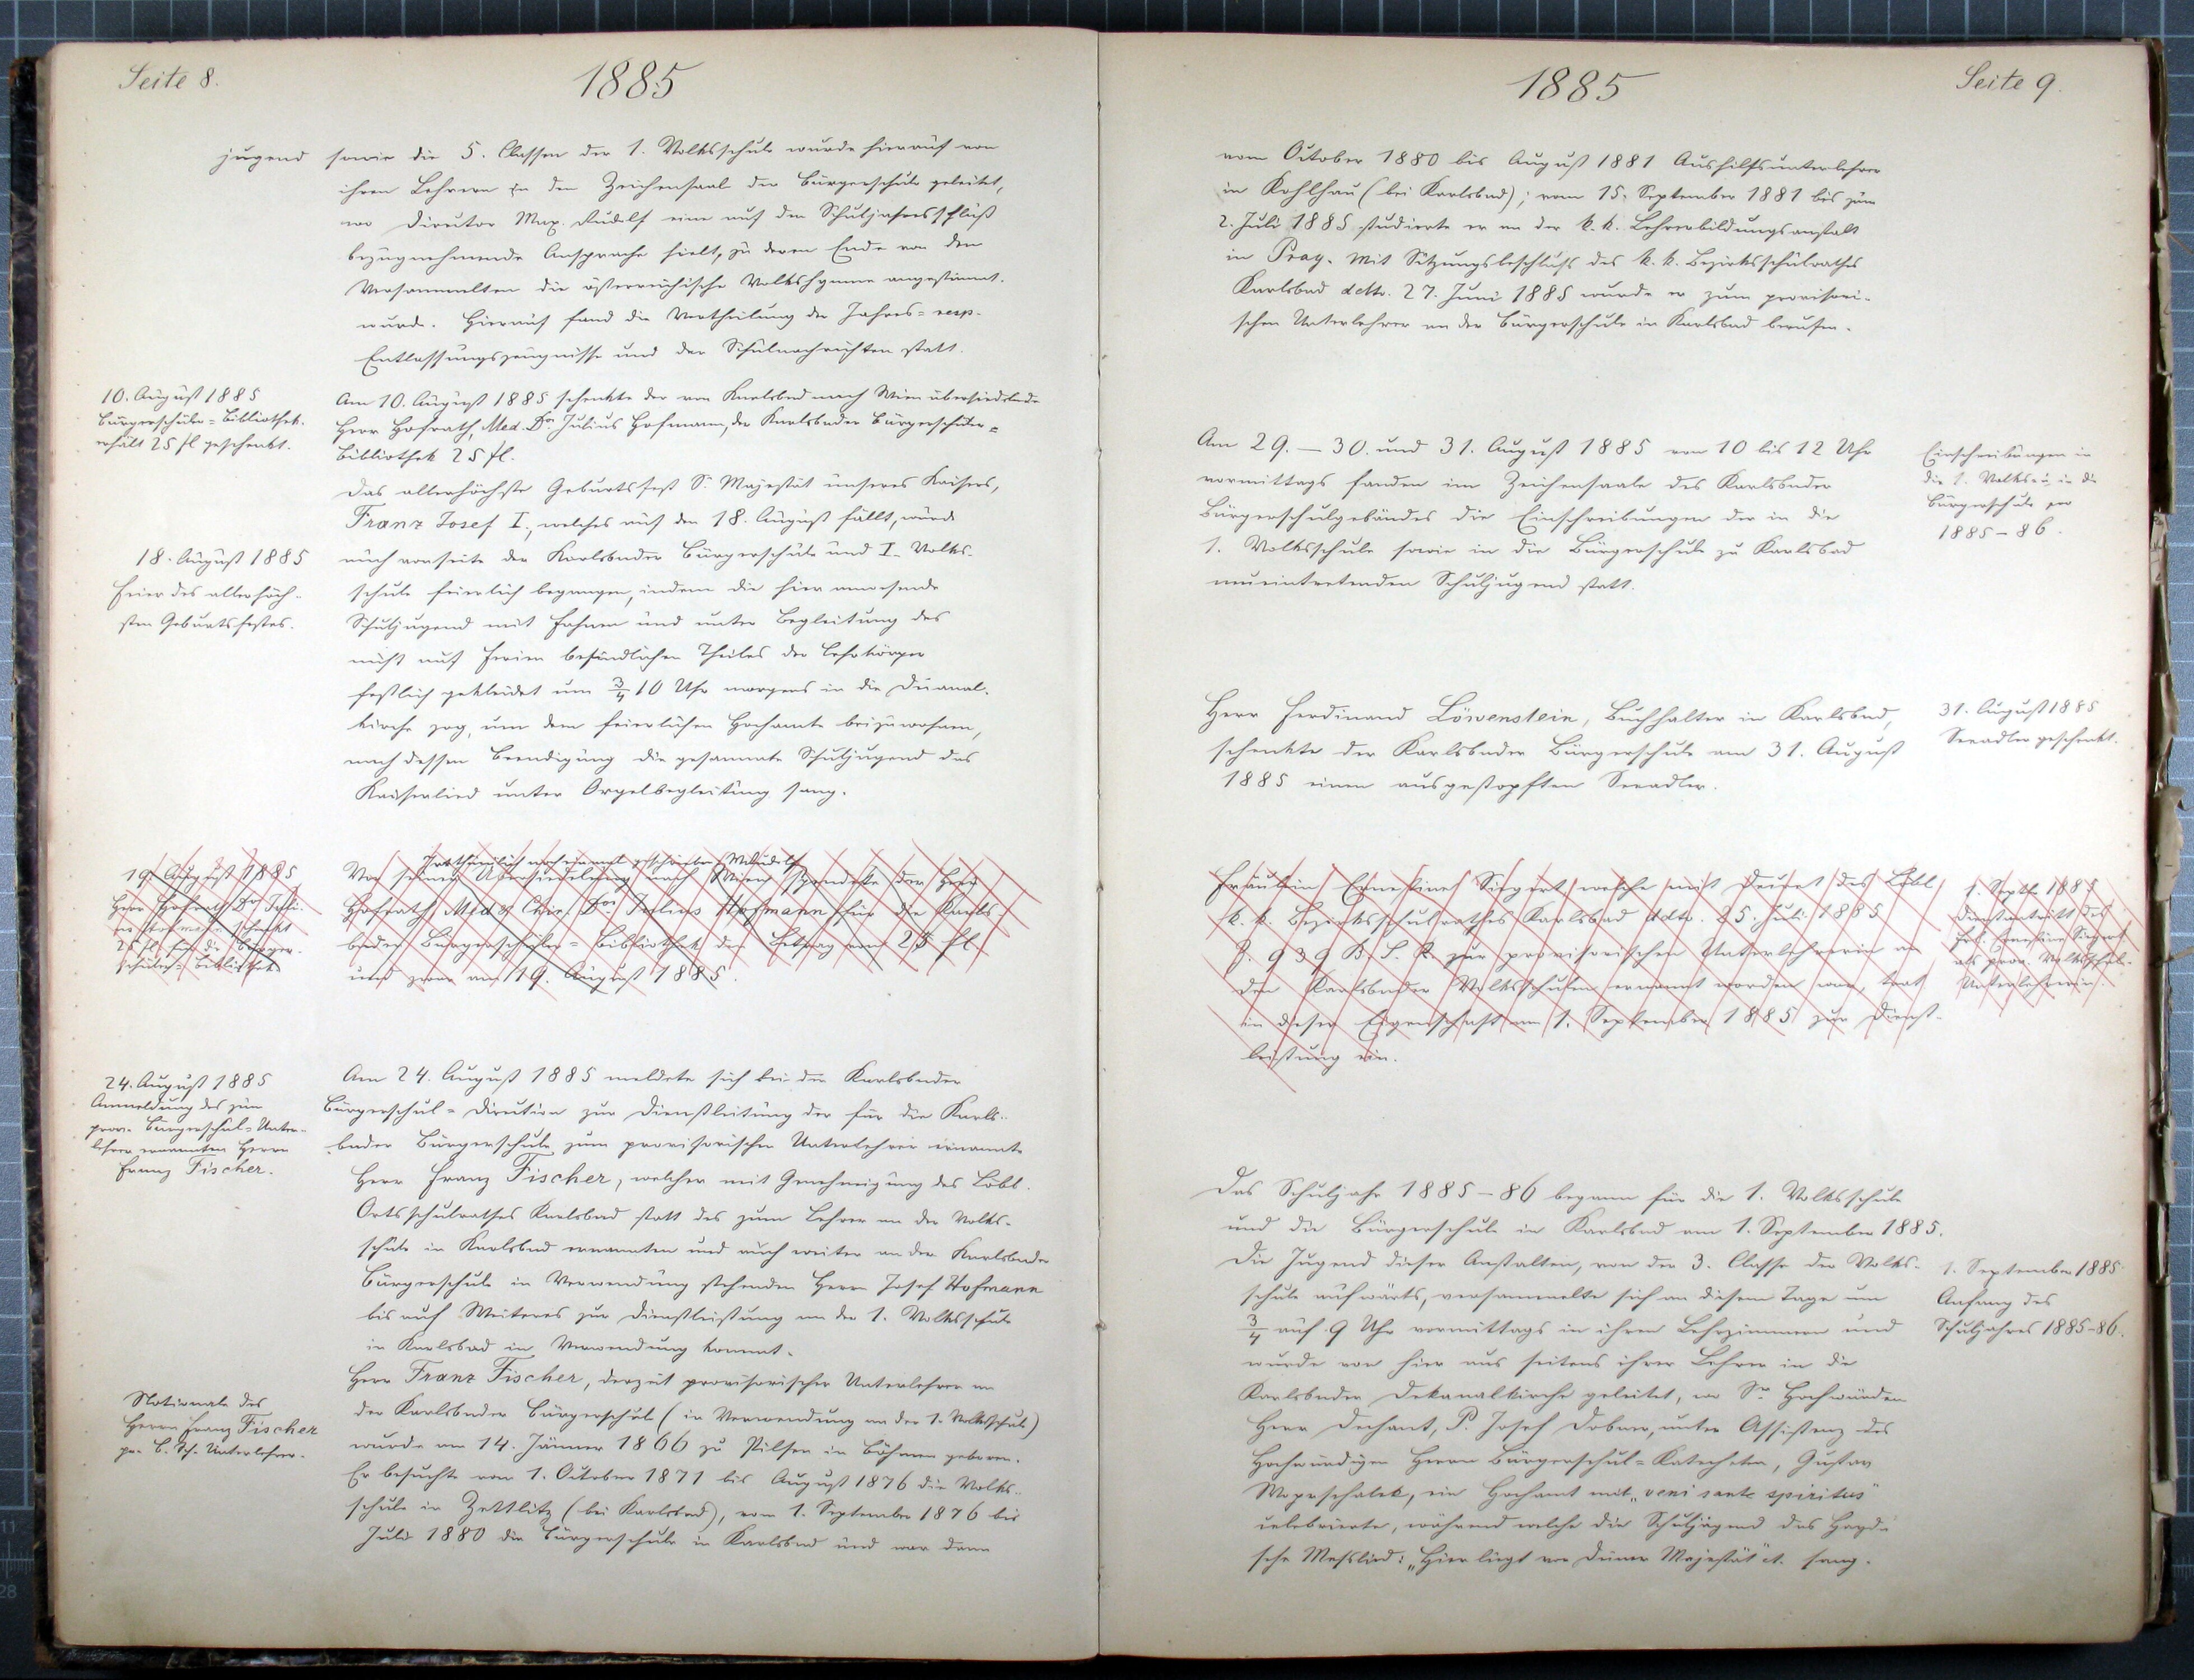 Seite 8.
1885
jugend sowie die 5. Classen der 1. Volksschule wurde hierauf von
ihren Lehrern in den Zeichensaal der Bürgerschule geleitet,
wo Director Max. Rudolf eine auf den Schuljahresschluß
bezugnehmende Ansprache hielt, zu deren Ende von den
Versammelten die österreichische Volkshymne angestimmt
wurde. Hierauf fand die Vertheilung der Jahres= resp.
Entlassungszeugnisse und der Schulnachrichten statt.
10. August 1885
Bürgerschüler=Bibliothek.
erhält 25 fl geschenkt.
Am 10. August 1885 schenkte der von Karlsbad nach Wien übersiedelnde
Herr Hofrath, Med. Dr. Julius Hofmann, der Karlsbader Bürgerschüler=
Bibliothek 25 fl.
Das allerhöchste Geburtsfest Sr. Majestät unseres Kaisers,
Franz Josef I., welches auf den 18. August fällt, wurde
18. August 1885
Feier des allerhöch-
sten Geburtsfestes.
auch vonseite der Karlsbader Bürgerschule und I. Volks-
schule feierlich begangen, indem die hier anwesende
Schuljugend mit Fahnen und unter Begleitung des
nicht auf Ferien befindlichen Theiles der Lehrkörper
festlich gekleidet um 3/4 10 Uhr morgens in die Decanal-
kirche zog, um dem feierlichen Hochamte beizuwohnen,
nach dessen Beendigung die gesammte Schuljugend das
Kaiserlied unter Orgelbegleitung sang.
19. August 1885
Herr Hofrath Dr. Juli-
us Hofmann schenkt
25 fl für die Bürger-
schüler=Bibliothek
Irrthümlich noch einmal geschrieben MRudolf
Vor seiner Übersiedelung nach Wien spendete der Herr
Hofrath Med & Chir. Dr. Julius Hofmann für die Karls-
bader Bürgerschüler=Bibliothek den Betrag von 25 fl
und zwar am 19. August 1885.
24. August 1885
Anmeldung des zum
prov. Bürgerschul=Unter-
lehrer ernannten Herrn
Franz Fischer.
Am 24. August 1885 meldete sich bei der Karlsbader
Bürgerschul=Direction zur Dienstleistung der für die Karls-
bader Bürgerschule zum provisorischen Unterlehrer ernannte
Herr Franz Fischer, welcher mit Genehmigung des Löbl.
Ortsschulrathes Karlsbad statt des zum Lehrer an der Volks-
schule in Karlsbad ernannten und auch weiter an der Karlsbader
Bürgerschule in Verwendung stehenden Herrn Josef Hofmann
bis auf Weiteres zur Dienstleistung an der 1. Volksschule
in Karlsbad in Verwendung kommt.
Nationale des
Herrn Franz Fischer
pr. B. Sch. Unterlehrer.
Herr Franz Fischer, derzeit provisorischer Unterlehrer an
der Karlsbader Bürgerschule (in Verwendung an der 1. Volksschule)
wurde am 14. Jänner 1866 zu Pilsen in Böhmen geboren.
Er besuchte vom 1. October 1871 bis August 1876 die Volks-
schule in Zettlitz (bei Karlsbad), vom 1. September 1876 bis
Juli 1880 die Bürgerschule in Karlsbad und war dann
1885
Seite 9.
vom October 1880 bis August 1881 Aushilfsunterlehrer
in Kohlhau (bei Karlsbad); vom 15. September 1881 bis zum
2. Juli 1885 studierte er an der k. k. Lehrerbildungsanstalt
in Prag. Mit Sitzungsbeschluss des k. k. Bezirksschulrathes
Karlsbad ddto. 27. Juni 1885 wurde er zum provisori-
schen Unterlehrer an der Bürgerschule in Karlsbad berufen.
Am 29. – 30. und 31. August 1885 von 10 bis 12 Uhr
vormittags fanden im Zeichensaale des Karlsbader
Bürgerschulgebäudes die Einschreibungen der in die
1. Volksschule sowie in die Bürgerschule zu Karlsbad
neueintretenden Schuljugend statt.
Einschreibungen in
die 1. Volks= u. in die
Bürgerschule pro
1885–86.
Herr Ferdinand Löwenstein, Buchhalter in Karlsbad,
schenkte der Karlsbader Bürgerschule am 31. August
1885 einen ausgestopften Seeadler.
31. August 1885
Seeadler geschenkt.
Fräulein Ernestine Siegert, welche mit Decret des Löbl.
k. k. Bezirksschulrathes Karlsbad ddto. 25. Juli 1885
Z. 939 B. S. R. zur provisorischen Unterlehrerin an
den Karlsbader Volksschulen ernannt worden war, trat
in dieser Eigenschaft am 1. September 1885 zur Dienst-
leistung ein.
1. Septb. 1885
Dienstantritt des
Frl. Ernestine Siegert
als prov. Volksschul-
Unterlehrerin.
Das Schuljahr 1885–86 begann für die 1. Volksschule
und die Bürgerschule in Karlsbad am 1. September 1885.
Die Jugend dieser Anstalten, von der 3. Classe der Volks-
schule aufwärts, versammelte sich an diesem Tage um
3/4 auf 9 Uhr vormittags in ihren Lehrzimmern und
wurde von hier aus seitens ihrer Lehrer in die
Karlsbader Dekanalkirche geleitet, wo Sr. Hochwürden
Herr Dechant, P. Josef Dobner, unter Assistenz des
Hochwürdigen Herrn Bürgerschul=Katecheten, Gustav
Woprschalek, ein Hochamt mit „veni sante spiritus"
celebrierte, während welche die Schuljugend das Haydn-
sche Messlied: „Hier liegt vor Deiner Majestät" et. sang.
1. September 1885
Anfang des
Schuljahres 1885–86.